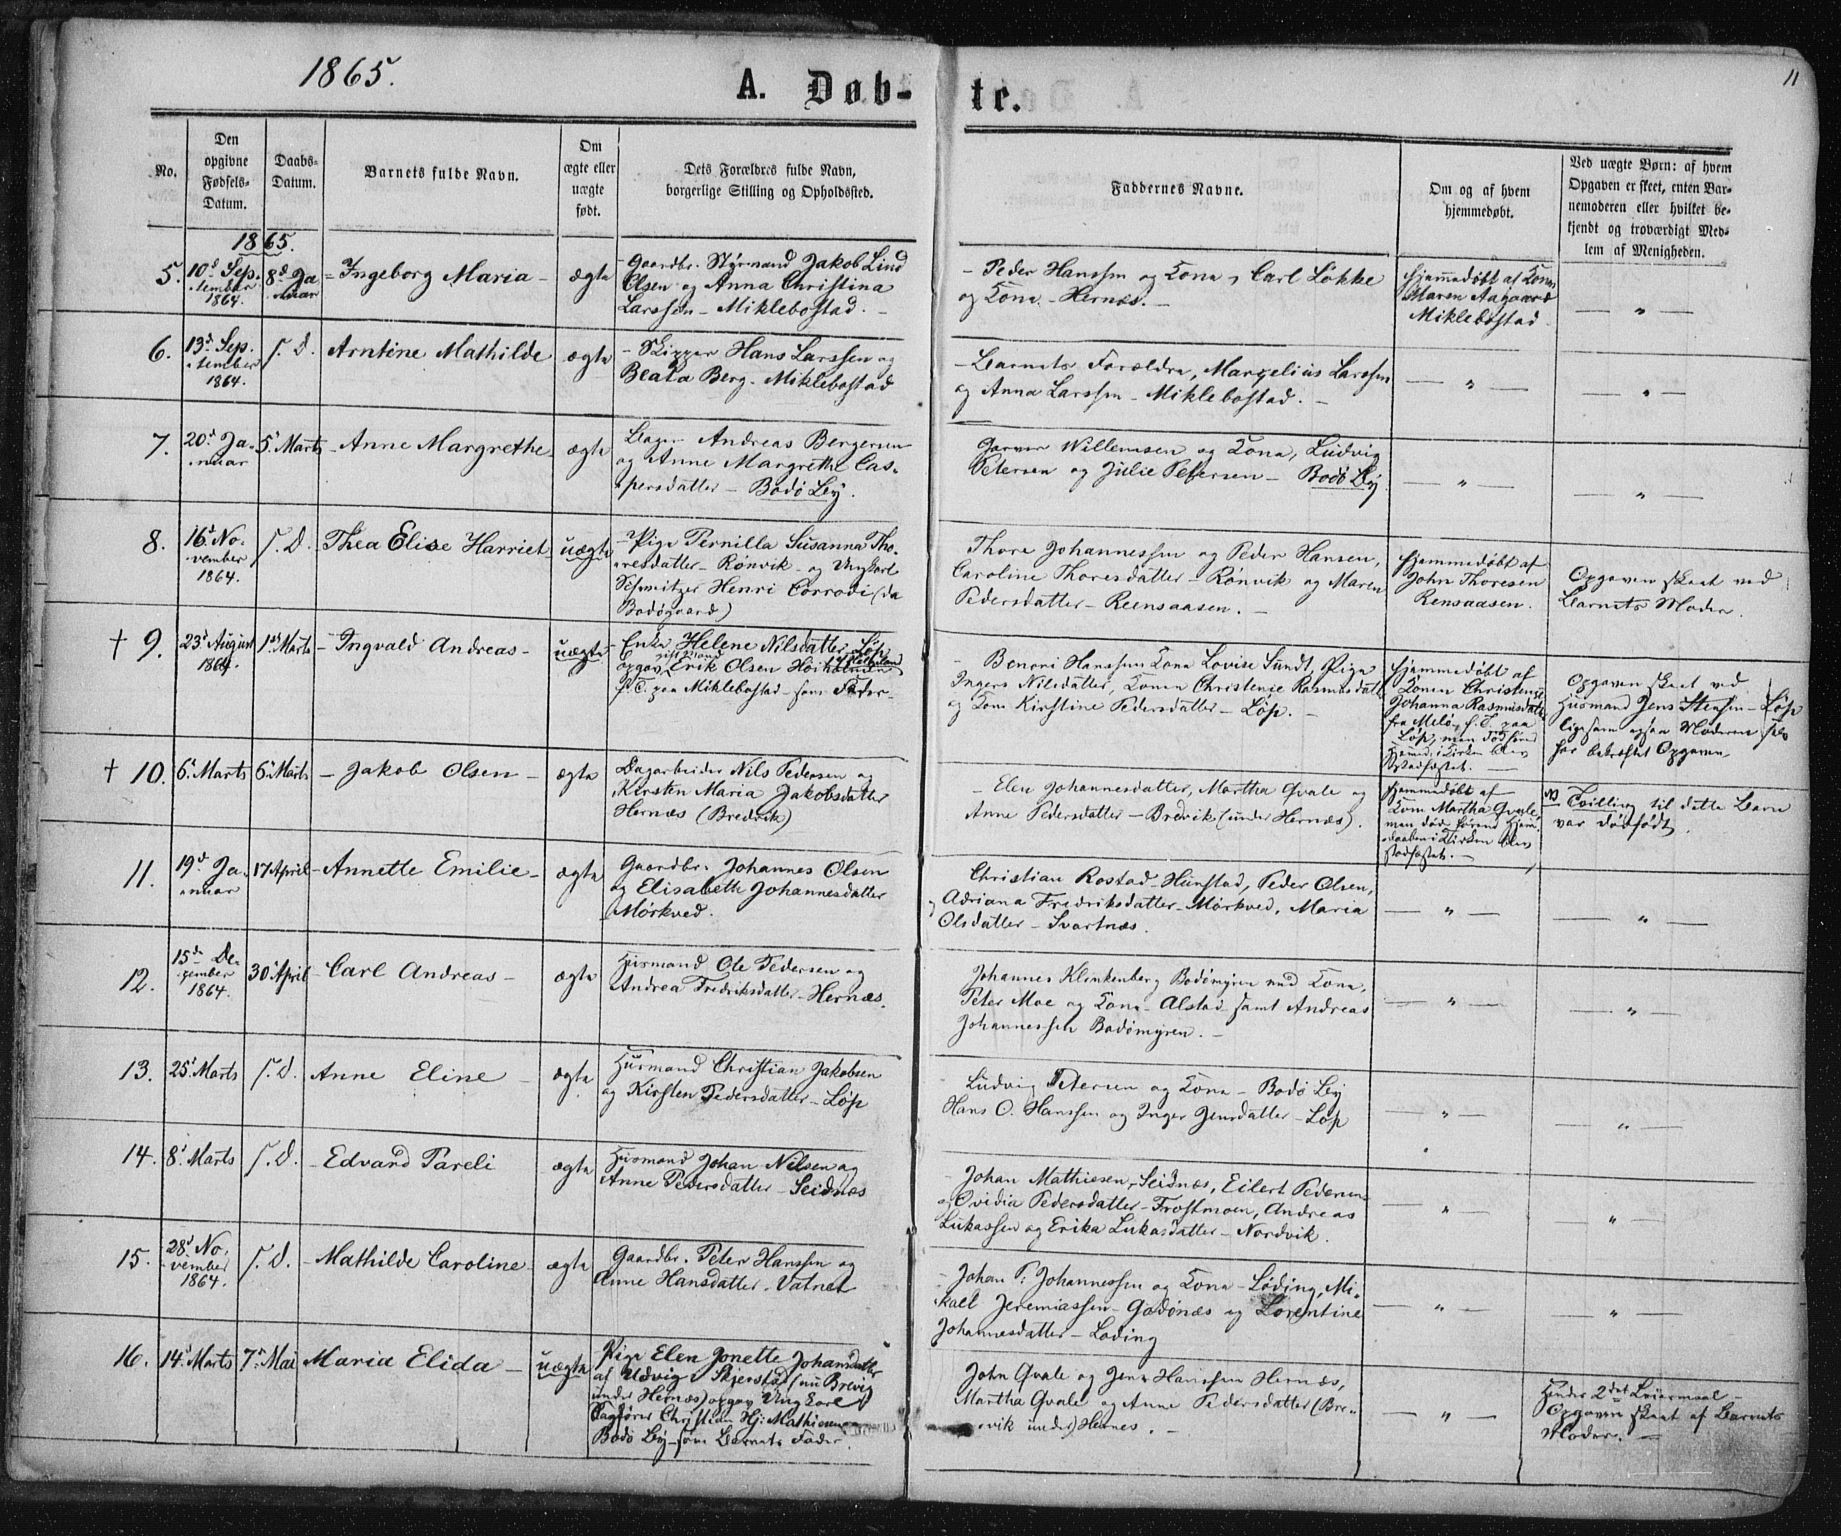 1865.
11
A. Døb-
te.
No.
Den
opgivne
Fødsels-
Datum.
Daabs-
Datum.
Barnets fulde Navn.
Om
ægte eller
uægte
født.
Dets Forældres fulde Navn,
borgerlige Stilling og Opholdssted.
Faddernes Navne.
Om og af hvem
hjemmedøbt.
Ved uægte Børn: af hvem
Opgaven er skeet, enten Bar-
nemoderen eller hvilket be-
kjendt og troværdigt Med-
lem af Menigheden.
1865.
5.
10d Sep-
tember
1864.
8d Ja-
nuar
- Ingeborg Maria -
ægte
- Gaardbr. Styrmand Jakob Lind
Olsen og Anna Christina
Larssen - Miklebostad. -
- Peder Hanssen og Kone, Carl Løkke
og Kone - Hernæs. -
Hjemmedøbt af Konen
Maren Aagaard
Miklebostad.
— " —
6.
13d Sep-
tember
1864.
s. D.
Arntine Mathilde
ægte
- Skipper Hans Larssen og
Beata Berg - Miklebostad
- Barnets Forældre, Margelius Larssen
og Anna Larssen - Miklebostad. -
— " —
— " —
7.
20d Ja-
nuar
5' Marts
- Anne Margrethe
ægte
Andreas Bergersen
og Anne Margrethe Cas-
persdatter - Bodø By.
Garver Willemsen og Kone, Ludvig
Petersen og Julie Petersen - Bodø By
— " —
— " —
8.
16d No-
vember
1864.
s. D.
- Thea Elise Harriet
uægte
- Pige Pernilla Susanna Tho-
resdatter - Rønvik - og Ungkarl
Schweitzer Henri Corrodi (da
Bodøgaard)
Thore Johannessen og Peder Hansen,
Caroline Thoresdatter - Rønvik og Maren
Pedersdatter - Reensaasen. -
Hjemmedøbt af
John Thoresen
Rensaasen.
Opgaven skeet ved
Barnets Moder.
† 9.
23d August
1864.
1ste Marts
- Ingvald Andreas -
uægte
- Enke Helene Nilsdatter - Løp
opgav gift Mand Erik Olsen
f. T. paa Miklebostad - som Fader -
- Benoni Hanssens Kone Lovise Sundt, Pige
Inger Nilsdatter, Konen Christense Rasmusdatter
og Kone Kirstine Pedersdatter - Løp. -
Hjemmedøbt af
Konen Christense
Johanna Rasmusdatter
fra Melø, f. T. paa
Løp, men død førend
Hjemd. i Kirken blev
stadfæstet. -
Opgaven skeet ved
Husmand Jens Stensen - Løp
ligesom ogsaa Moderen selv
har bekræftet Opgaven
† 10.
6' Marts
6' Marts
- Jakob Olsen -
ægte
Dagarbeider Nils Pedersen og
Kirsten Maria Jakobsdatter
Hernæs (Bredvik)
- Elen Johannesdatter, Martha Qvale og
Anne Pedersdatter - Brevik (under Hernæs).
Hjemmedøbt af
Kone Martha Qvale,
men døde førend Hjem-
medaaben i Kirken blev
stadfæstet. -
NB Tvilling til dette Barn
var dødfødt.
11.
19d Ja-
nuar
17 April
- Annette Emilie -
ægte
Gaardbr. Johannes Olsen
og Elisabeth Johannesdatter
Mørkved.
Christian Rostad - Hunstad, Peder Olsen,
Adriana Fredriksdatter - Mørkved, Maria
Olsdatter - Svartnæs.
— " —
— " —
12.
15de De-
zember
1864.
30' April
- Carl Andreas -
ægte
Husmand Ole Pedersen og
Andrea Fredriksdatter - Hernæs.
Johannes Klinkenberg Bodømyren med Kone,
Peter Moe og Kone - Alstad samt Andreas
Johannessen Bodømyren. -
— " —
— " —
13.
25' Marts
s. D.
Anne Eline -
ægte
Husmand Christian Jakobsen
og Kirsten Pedersdatter - Løp
Ludvig Petersen og Kone - Bodø By
Hans O. Hanssen og Inger Jensdatter - Løp
— " —
— " —
14.
8' Marts
s. D.
- Edvard Pareli
ægte
Husmand Johan Nilsen og
Anne Pedersdatter - Seidnæs
- Johan Mathiesen, Seidnæs, Eilert Pedersen
og Ovidia Pedersdatter - Frostmoen, Andreas
Lukassen og Erika Lukasdatter - Nordvik.
— " —
— " —
15.
28d No-
vember
1864.
s. D.
- Mathilde Caroline
ægte
Gaardbr. Peter Hanssen og
Anne Hansdatter - Vatnet
- Johan P. Johannessen og Kone - Løding, Mi-
kael Jeremiassen - Godønæs og Lorentine
Johannesdatter - Løding
— " —
— " —
16.
14' Marts
7' Mai
Maria Elida -
uægte
Pige Elen Jonette Johansdatter
af Udvig i Skjerstad (nu Brevig
under Hernæs) opgav Ungkarl
Christian Hj. Mathiesen
Bodø By - som Barnets Fader.
John Qvale og Jens Hanssen Hernæs,
Martha Qvale og Anne Pedersdatter (Bre-
vik under) Hernes. -
— " —
Hendes 2det Leiermaal -
Opgaven skeet af Barnets
Moder. -